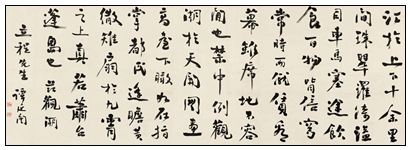 江干上下十余里
間珠翠羅綺溢
目車馬塞途飲
食百物皆倍穹
常時而僦賃看
幕雖席地不容
間也禁中例觀
潮於天開圖畫
高臺下瞰如在指
掌都民遙瞻黃
繖雉扇於九霄
之上真若蕭臺
蓬島也 觀潮
立程先生 譚延闓